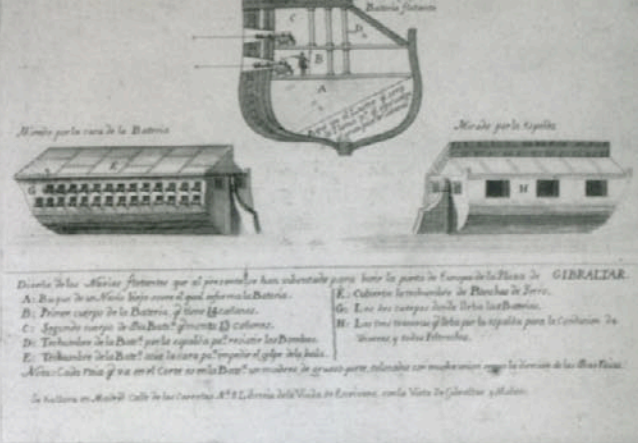 Bateria flotante
C
D
B
A
Mirado por la cara de la Bateria
Mirado por la espalda
E
G
H
Diseño de las Naves flotantes que al presente se han inbentado para batir la punta de Europa de la Plaza de GIBRALTAR.
A: Buque de un Navio Viejo sobre el qual se forma la Bateria.
B: Primer cuerpo de la Bateria, q.e tiene cañones.
C: Segundo cuerpo de dha Bat.a q.e monta 13 cañones.
D: Techumbre de la Bat.a por la espalda p.a resistir las Bombas.
E: Techumbre de la Bat.a acia la cara p.a impedir el golpe de la bala.
F: Cubierta la techumbre de Planchas de Fierro.
G: Los dos cuerpos donde estan las Baterias.
H: Las tres troneras q.e lleba por la espalda para la Conducion de
Viveres y todos Petrechos.
Nota: Cada raya q.e va en el Corte es en la Bat.a un madero de grueso porte, colocados con mucha union segun la direcion de las dhas Rayas.
Se hallara en Madrid Calle de las Carretas Libreria de la Viuda de Escrivano, con la Vista de Gibraltar y Mahon.